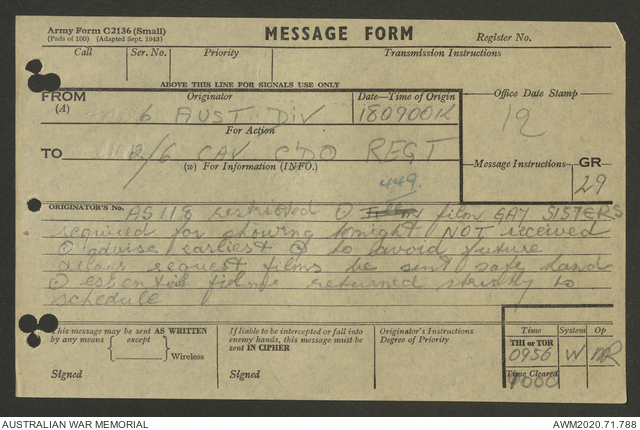 Army Form C2136 (Small)
(Pads of 100) (Adapted Sept. 1943)
MESSAGE FORM
Register No.
Call Ser. No. Priority Transmission Instructions
ABOVE THIS LINE FOR SIGNALS USE ONLY
FROM Originator Date—Time of Origin Office Date Stamp
(A) 6 AUST DIV 180900K 12
For Action
TO 2/6 CAV C'DO REGT
(w) For Information (INFO.) Message Instructions GR
449 29
ORIGINATOR'S No. AS118 restricted ⊙ film GAY SISTERS
required for showing tonight NOT received
⊙ advise earliest ⊙ to avoid future
delays request films be sent safe hand
⊙ essential films returned strictly to
schedule
This message may be sent AS WRITTEN
by any means except
Wireless
Signed
If liable to be intercepted or fall into
enemy hands, this message must be
sent IN CIPHER
Signed
Originator's Instructions
Degree of Priority
Time System Op
THI or TOR
0956 W
Time Cleared
1000
AUSTRALIAN WAR MEMORIAL AWM2020.71.788